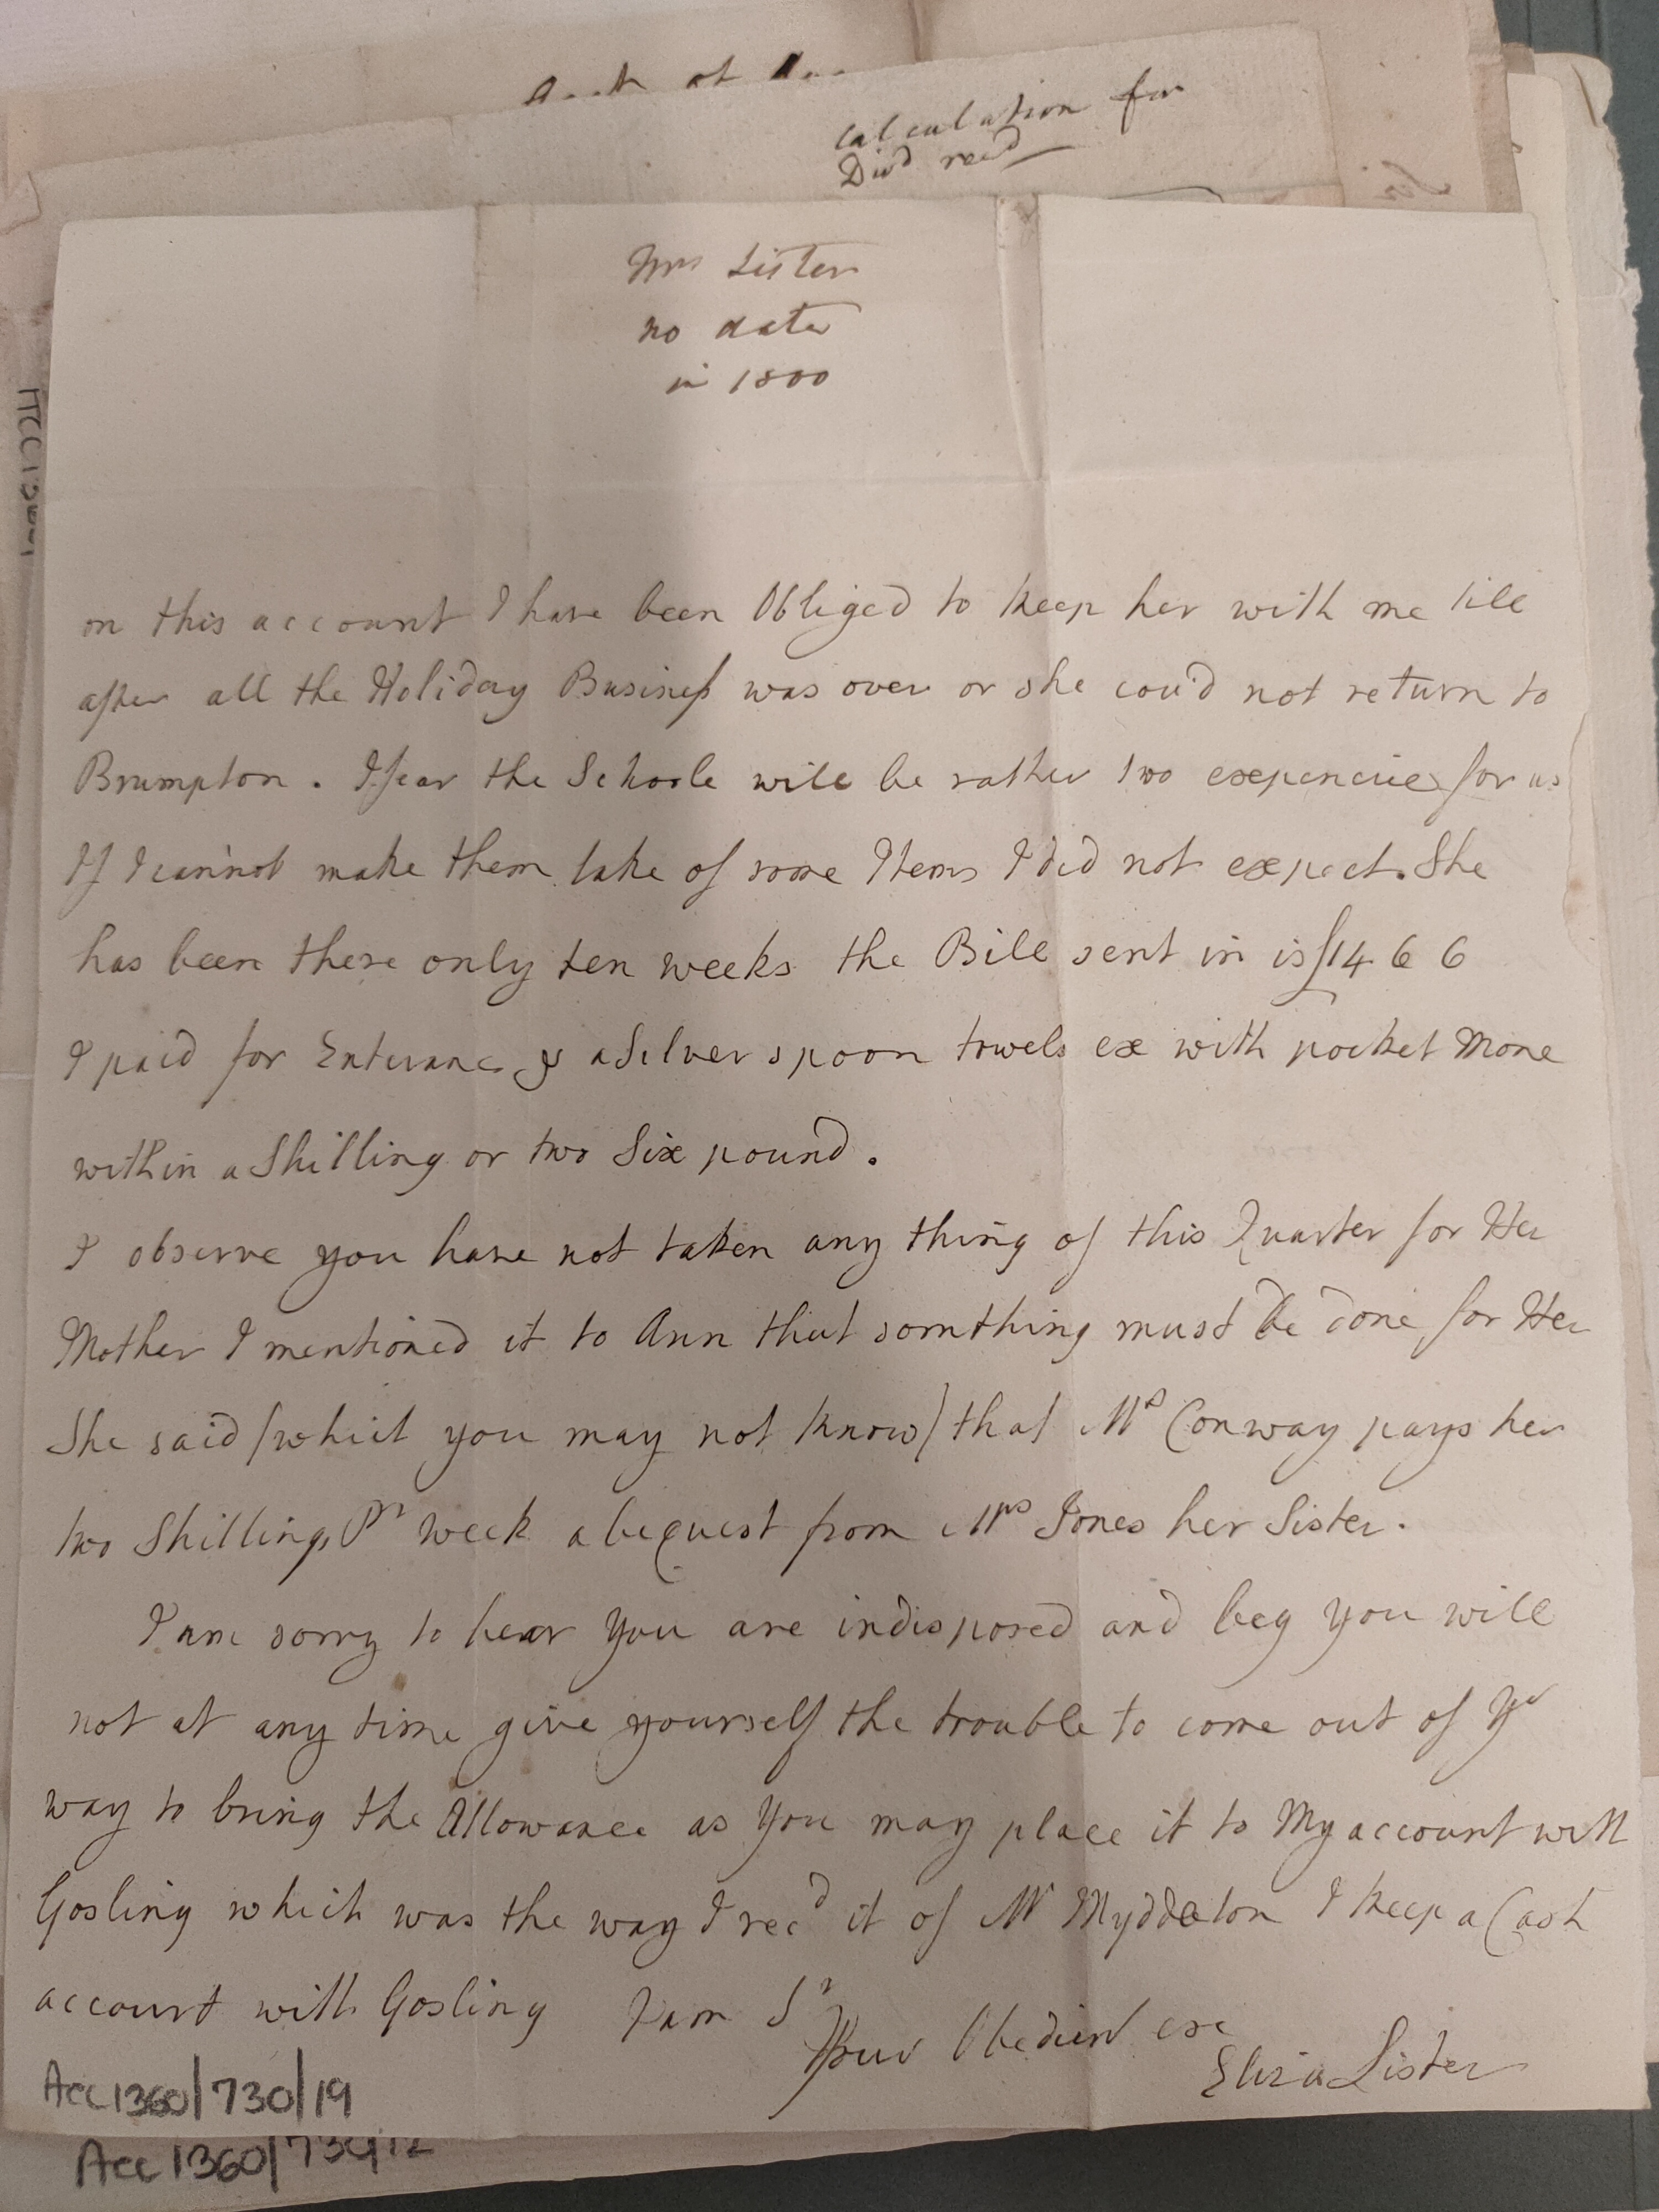 calculation for
Divd recd
Mrs Lister
no date
in 1800
on this account I have been Obliged to keep her with me till
after all the Holiday Business was over or she cou'd not return to
Brumpton. I fear the Schoole will be rather two expencive for us
If I cannot make them take of some Items I did not expect. She
has been there only ten weeks the Bill sent in is £14 6 6
I paid for Enterance & a Silver spoon towels ex with pocket Mone
within a Shilling or two Six pound.
I observe you have not taken any thing of this Quarter for Her
Mother I mentioned it to Ann that somthing must be done for Her
She said (which you may not know) that Mrs Conway pays her
two Shillings Pr week a bequest from Mrs Jones her Sister.
I am sorry to hear you are indisposed and beg you will
not at any time give yourself the trouble to come out of Yr
way to bring the Allowance as you may place it to My account with
Gosling which was the way I recd it of Mr Myddelton I keep a Cash
account with Gosling I am Sr
Your Obedient
Eliza Lister
Acc1360/730/19
Acc1360/730/12